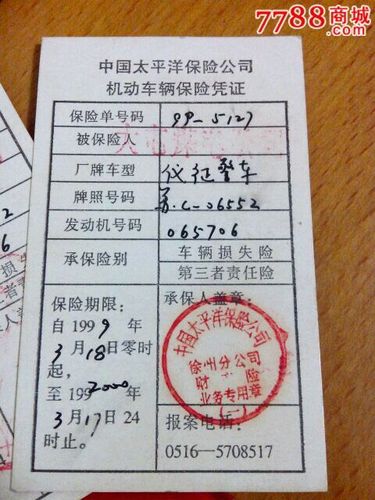 7788商城
中国太平洋保险公司
机动车辆保险凭证
保险单号码 99-5127
被保险人
厂牌车型 仪征警车
牌照号码 苏.C-06552
发动机号码 065706
承保险别 车辆损失险
第三者责任险
保险期限：
自 1999 年
3月18日零时
起，
至 2000 年
3月17日24
时止。
承保人盖章：
中国太平洋保险公司
徐州分公司
财险
业务专用章
(一)
报案电话：
0516-5708517